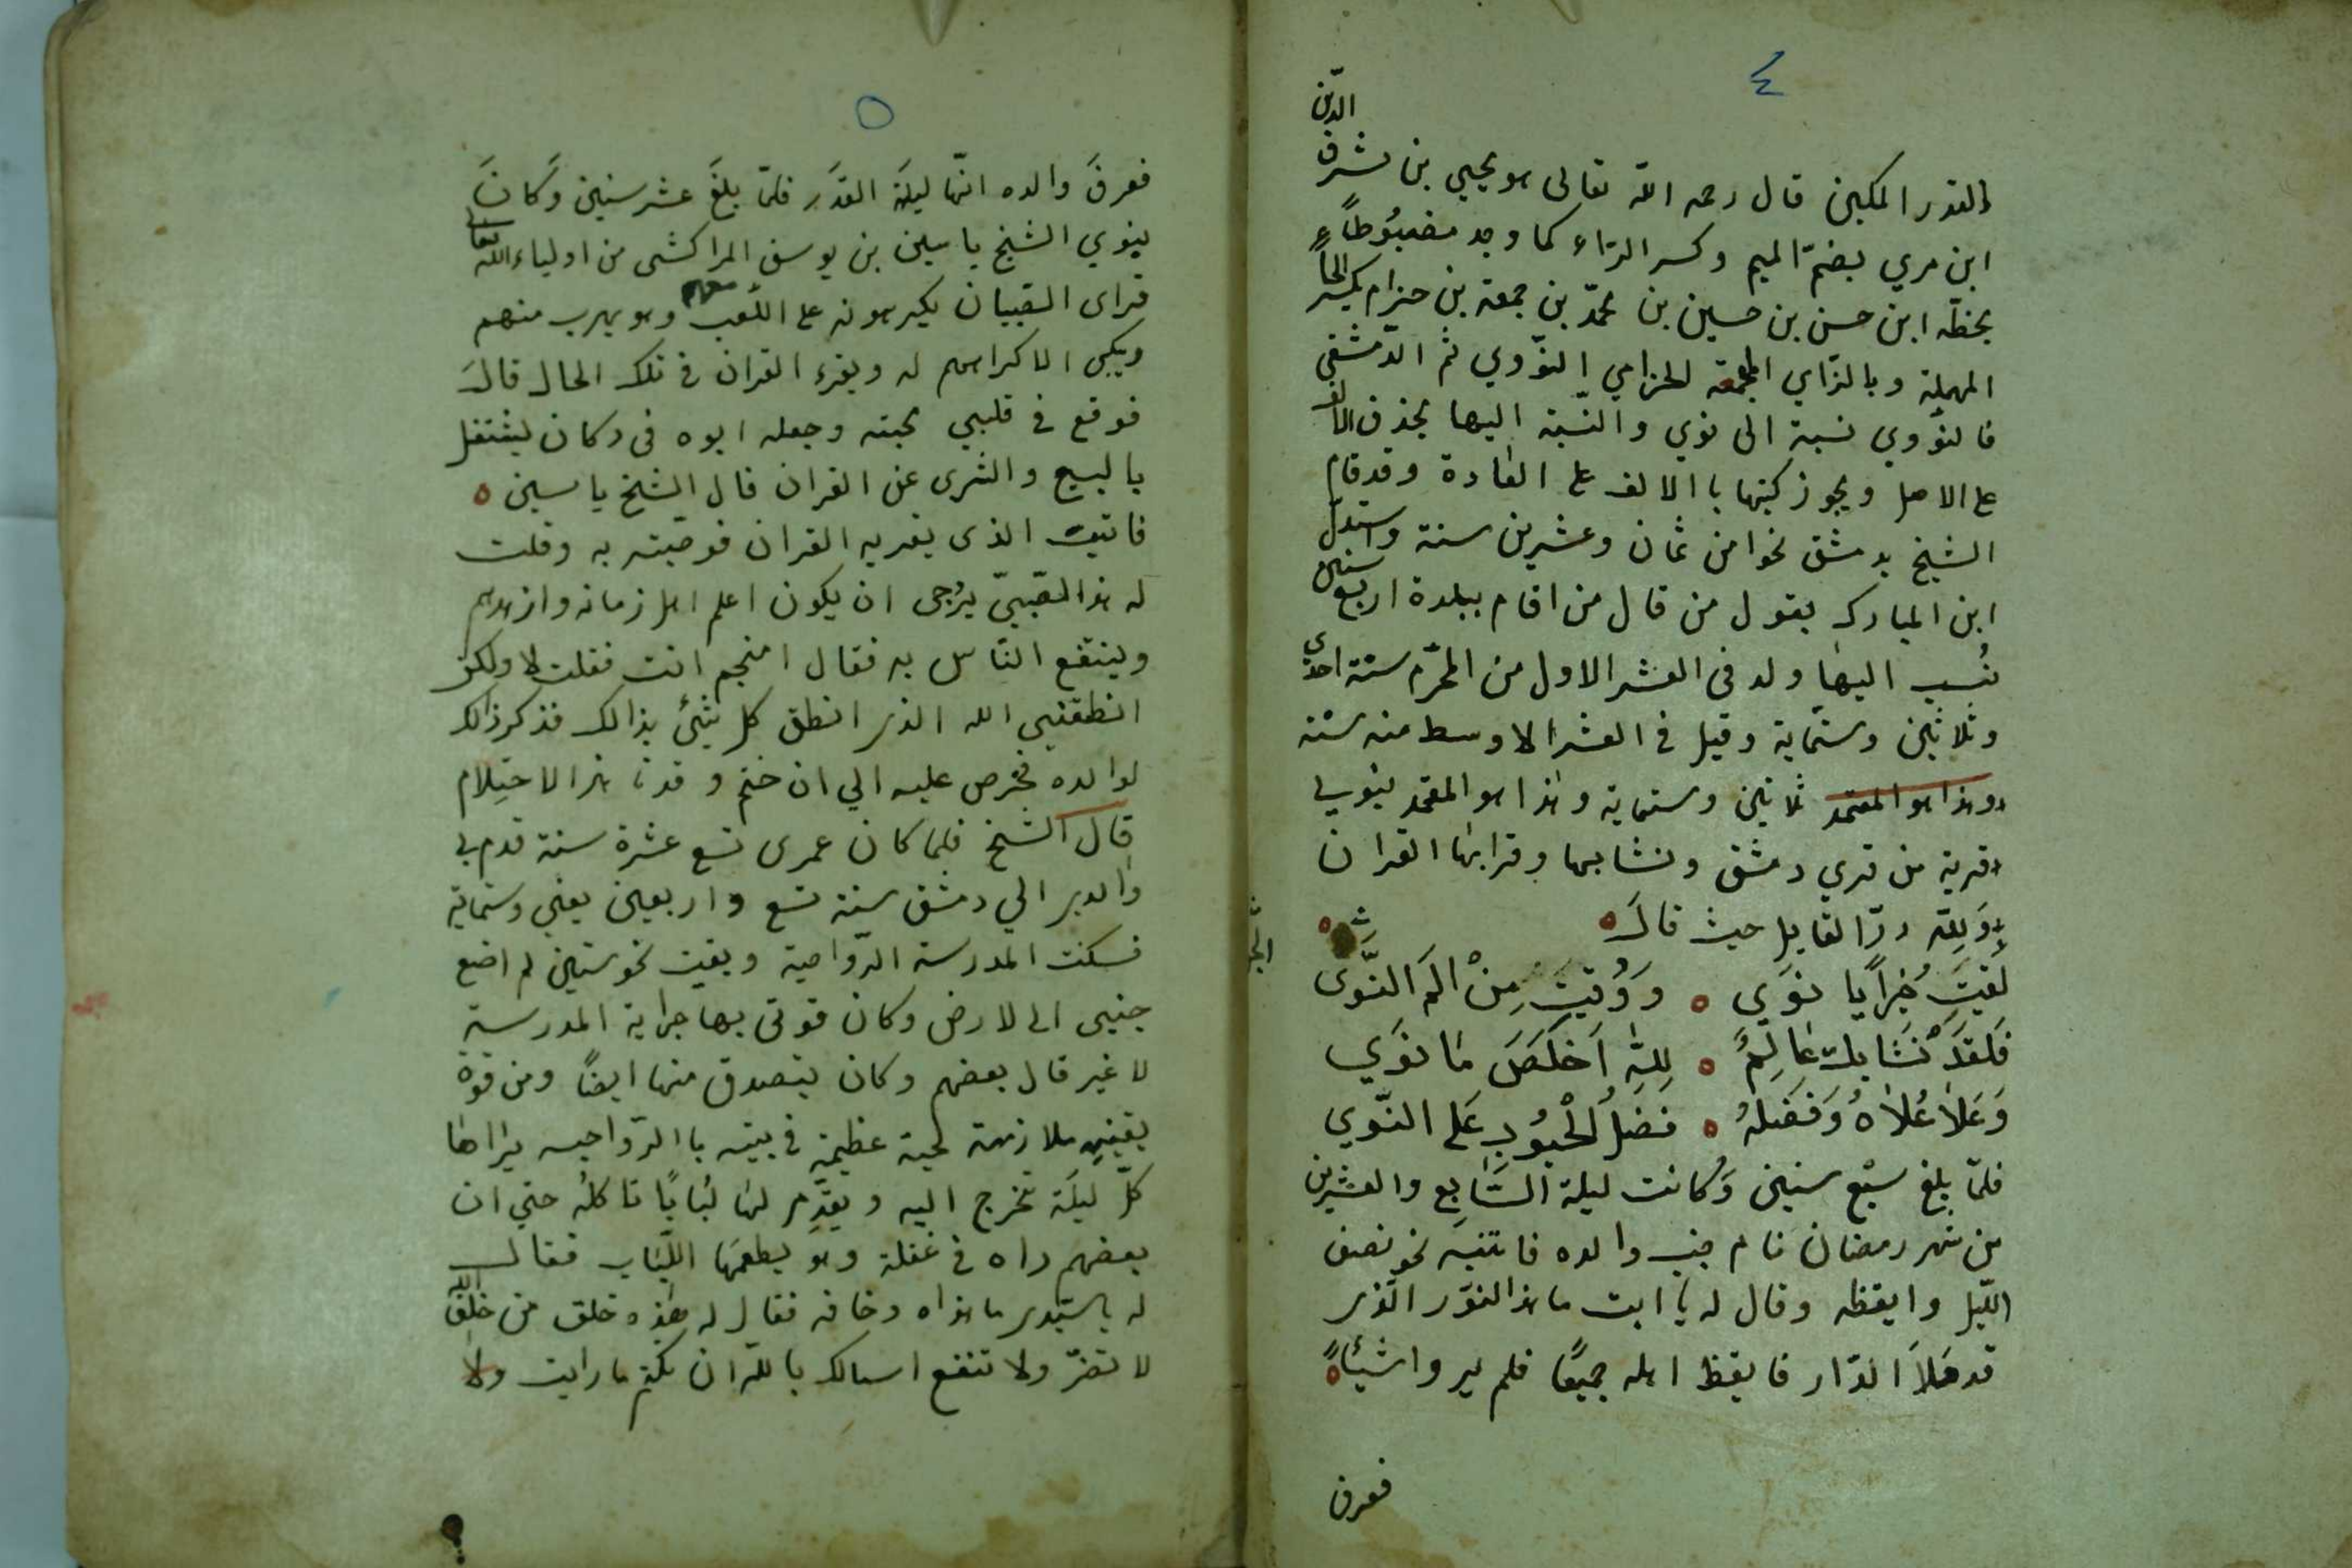 ٤
الدين
القدر المكين قال رحمه الله تعالى هو يحيي بن شرف
ابن مري بضمّ الميم وكسر الرّاء كما وجد مضبُوطاً
بخطّه ابن حسن بن حسين بن محمّد بن جمعة بن حزام بكسر الحاء
المهملة وبالزّاي المعجمة الحزامي النوّوي ثم الدّمشقي
فالنوّوي نسبة الى نوي والنّسبة اليها بحذف الالف
على الاصل ويجوز كتبها باالالف على العادة وقد قام
الشيخ بدمشق نحوا من ثمان وعشرين سنة واستدلّ
ابن المبارك يقول من قال من اقام ببلدة اربع سنين
نُسب اليها ولد فى العشر الاول من المحرّم سنة احدى
وثلاثين وستماية وقيل فى العشر الاوسط منه سنة
وهذا هو المعتمد ثلاثين وستماية وهذا هو المعتمد بنوي
قرية من قري دمشق ونشا بها وقرا بها القران
وَللّه درّ القايل حيث قالَ ه شعر ه
لَقيَتِ خُيراً يا نَوَي ه وَوُقيَتِ مِنْ المَ النَّوَى
فَلَقَدْ نَشَا بك عَالِمٌ ه لِلّهِ اَخلَصَ مَا نوَي
وَعَلا عُلاهُ وَفَضلهُ ه فَضلُ الحُبُوبِ عَلى النّوي
فلمّا بلغ سبْع سنين وَكانت ليلة السَّابِع والعشرين
من شهر رمضان نام جنب والده فانتبه نحو نصف
اللّيل وايقظه وقال له يا ابت ما هذا النوّر الّذى
قد مَلأ الدّار فايقظ اهله جميعًا فلم يروا شيئًا ه
فعرف
٥
فعرفَ والده انهّا ليلَة القدَر فلمّا بلغَ عشر سنين وَكانَ
بنوي الشيخ ياسين بن يوسف المراكشى من اولياء الله تعالى
فراى الصّبيان يكرهونه على اللّعب معهم وهو يهرب منهم
ويبكى لاكراههم له ويقرء القران فى تلك الحال قالَ
فوقع فى قلبي محبته وجعله ابوه فى دكان ليشتغل
بالبيع والشرى عن القران قال الشيخ ياسين ه
فاتيت الذى يقريه القران فوصيته به وقلت
له هذا الصّبيّ يرُجى ان يكون اعلم اهل زمانه وازهدهم
وينتفع النّاس به فقال امنجم انت فقلت لا ولكن
انطقني الله الذى انطق كل شئ بذالك فذكر ذالك
لوالده فحرص عليه الي ان ختم و قد ناهز الاحتِلام
قال الشيخ فلما كان عمرى تسع عشرة سنة قدم بي
والدى الي دمشق سنة تسع واربعين يعني وستماية
فسكنت المدرسة الرّواحية وبقيت نحو سنتين لم اضع
جنبى الى لارض وكان قوتى بها جراية المدرسة
لا غير قال بعضهم وكان يتصدق منها ايضًا ومن قوة
يقينهِ ملازمة لحية عظيمة فى بيته باالرّواحيه يراها
كلّ ليلَة تخرج اليه ويقدّم لها لبُابًا تاكلهُ حتي ان
بعضهم راه فى غفلة وهوَ يطعمهَا اللّبَاب فقالَ
له ياسيّدى ما هذاه وخافه فقال له هٰذه خلق من خلق الله
لا تضرّ ولا تنفع اسالك باللّه ان تكتم ما رايت ولا